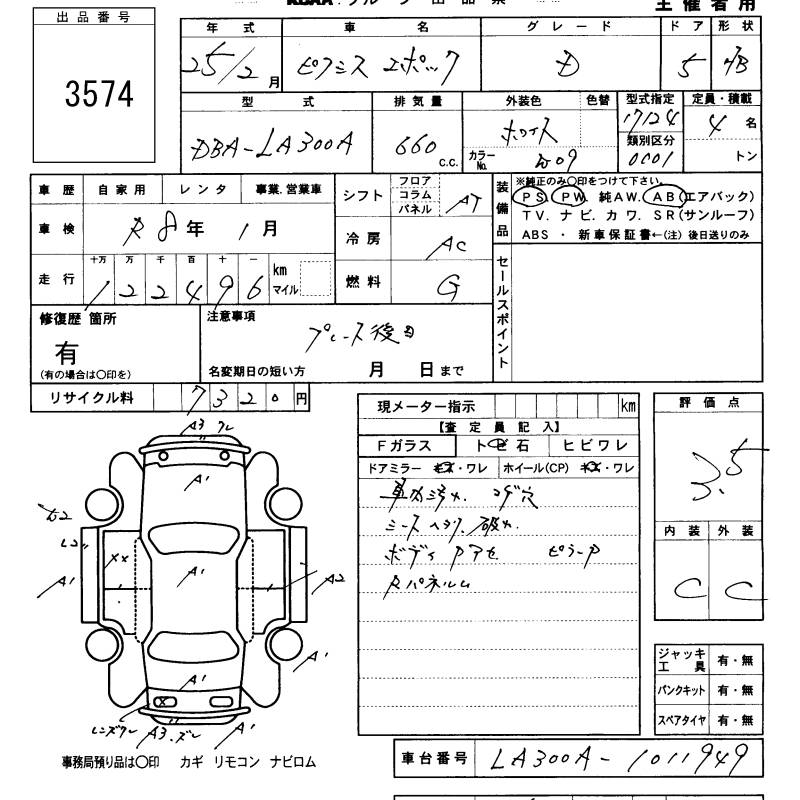 主催者用
出品番号
3574
年式 車名 グレード ドア 形状
25/2月 ピクシス エポック D 5 HB
型式 排気量 外装色 色替 型式指定 定員・積載
DBA-LA300A 660 c.c. ホワイト 17124 4名
カラーNo. 類別区分 0001 トン
車歴 自家用 レンタ 事業.営業車
シフト フロア コラム パネル AT
装備品 ※純正のみ○印をつけて下さい。
PS. PW. 純AW. AB(エアバック)
TV. ナビ. カワ. SR(サンルーフ)
ABS ・ 新車保証書←(注) 後日送りのみ
車検 R8年 1月
冷房 AC
走行 十万 万 千 百 十 一
122496 km マイル
燃料 G
セールスポイント
修復歴 箇所
有
(有の場合は○印を)
注意事項
プレース後日
名変期日の短い方 月 日まで
リサイクル料 7320円
現メーター指示 km
【査定員記入】
Fガラス トビ石 ヒビワレ
ドアミラー キズ・ワレ ホイール(CP) キズ・ワレ
車内汚れ コゲ穴
シートヘタリ 破れ
ボディ Pアセ ピラーP
Rパネルム
評価点
3.5
内装 外装
C C
A3 ワレ
A1
A1
A1
A1
A2
A1
A1
A3.ズレ
レンズワレ
ジャッキ 工具 有・無
パンクキット 有・無
スペアタイヤ 有・無
事務局預り品は○印 カギ リモコン ナビロム
車台番号 LA300A-1011949